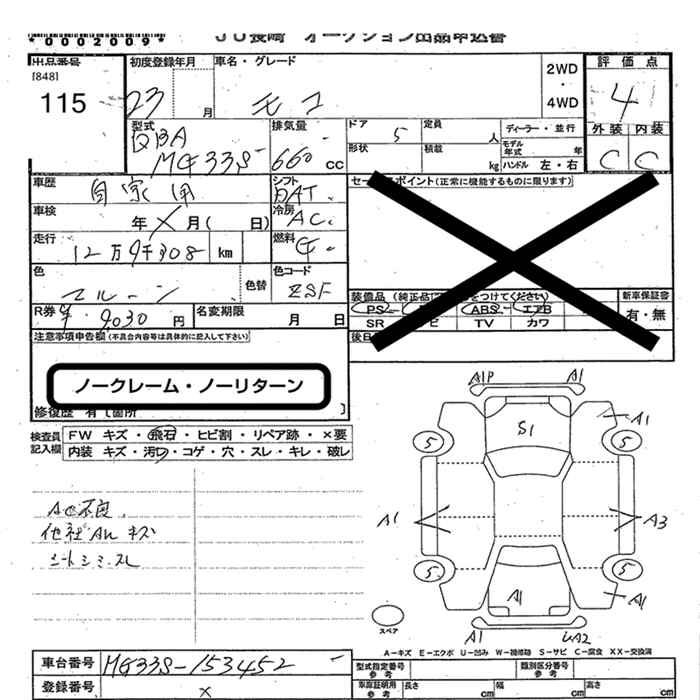 *0002009* JU長崎 オークション出品申込書
出品番号 初度登録年月 車名・グレード 評価点
[848] 2WD
115 23 月 モコ 4WD 4
型式 排気量 ドア 定員 ディーラー・並行 外装 内装
QBA 5 人 モデル年式 年
MG33S 660 cc 形状 積載 kg ハンドル 左・右 C C
車歴 自家用 シフト セールスポイント(正常に機能するものに限ります)
車検 年 X 月( 日) 冷房 AC
走行 12万9千308 km 燃料
色 マルーン 色替 色コード ZSF
装備品 (純正品に をつけてください) 新車保証書
PS ABS エアB 有・無
SR ビ TV カワ
R券 ¥9030 円 名変期限 月 日
注意事項申告欄(不具合内容等は具体的に記入して下さい) 後日
ノークレーム・ノーリターン
修復歴 有[箇所 ]
検査員記入欄 FW キズ・飛石・ヒビ割・リペア跡・×要
内装 キズ・汚れ・コゲ・穴・スレ・キレ・破レ
A1P A1
S1 A1
5 5
AC不良
他社AW キズ
シートシミ・スレ
A1 A3
5 5
A1 A1
スペア
A1 UA2
A-キズ E-エクボ U-凹み W-補修跡 S-サビ C-腐食 XX-交換済
車台番号 MG33S-153452
型式指定番号 参考 類別区分番号 参考
登録番号 X
車庫証明用 参考 長さ cm 幅 cm 高さ cm